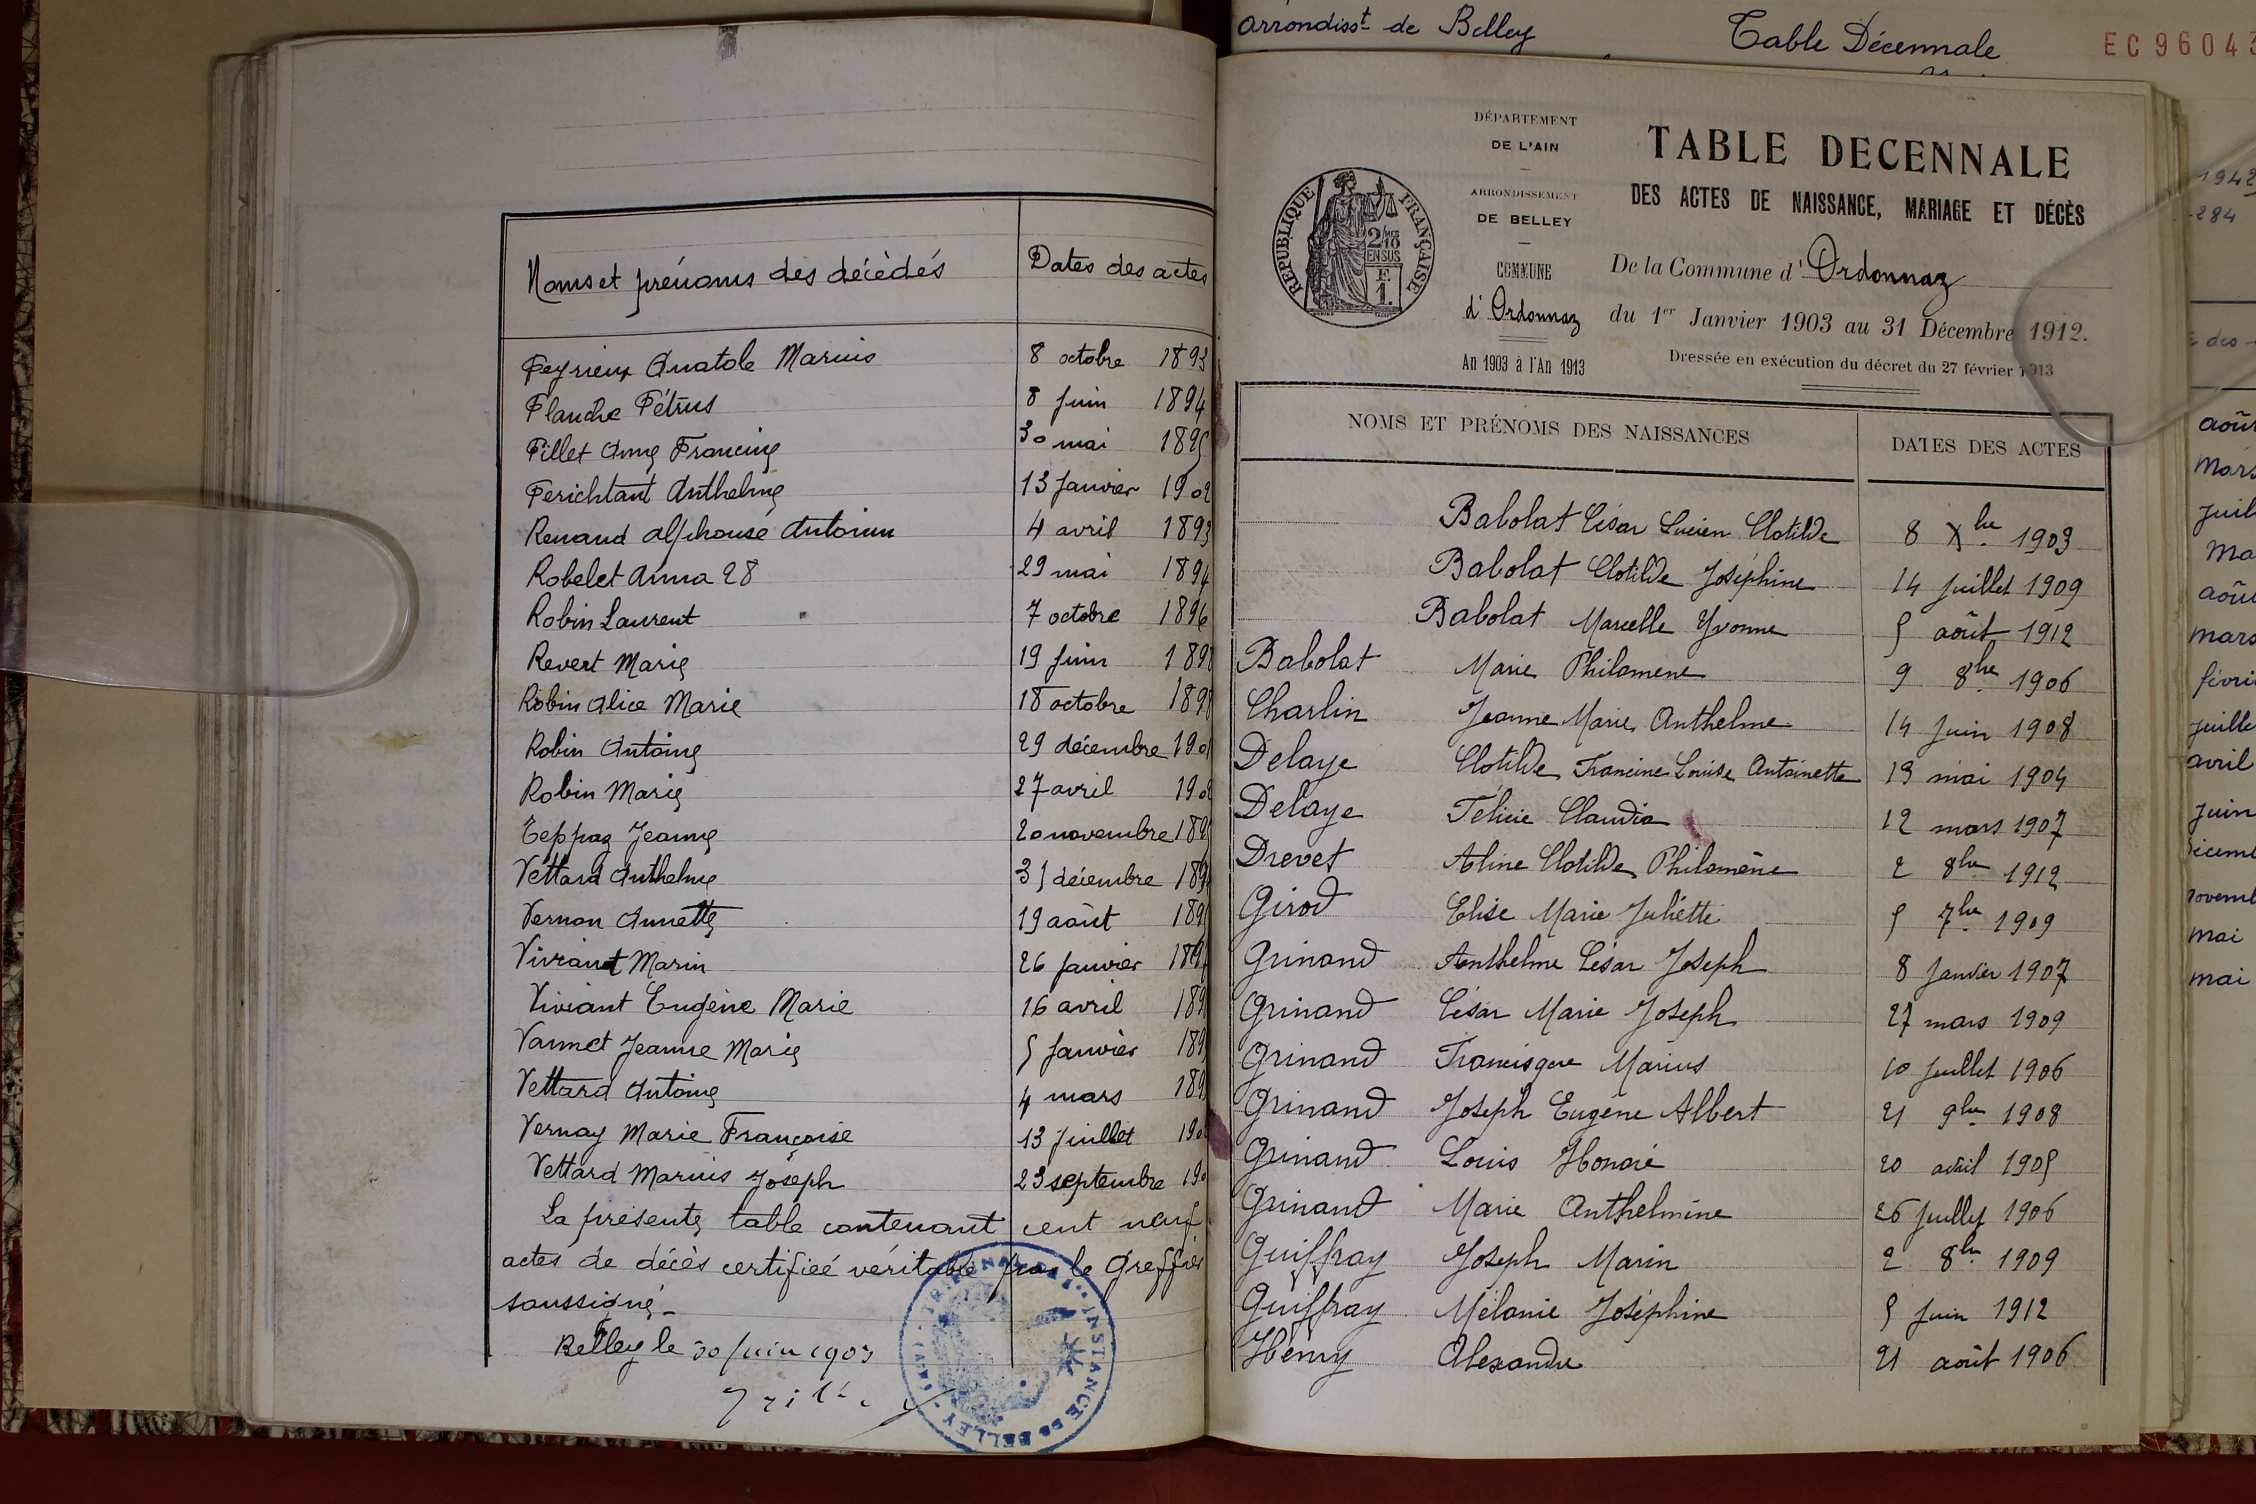 Noms et prénoms des décèdés Dates des actes
Peyrieux Anatole Marius 8 octobre 1893
Planche Pétrus 8 juin 1894
Pillet Anne Francine 30 mai 1895
Perichtant Anthelme 13 janvier 1902
Renaud Alphonse Antoine 4 avril 1893
Robelet Anna 28 29 mai 1894
Robin Laurent 7 octobre 1896
Revert Marie 19 juin 1898
Robin Alice Marie 18 octobre 1898
Robin Antoine 29 décembre 190
Robin Marie 27 avril 190
Teppaz Jeanne 20 novembre 189
Vettard Anthelme 31 décembre 189
Vernon Annette 19 août 189
Viviant Marin 26 janvier 189
Viviant Eugène Marie 16 avril 189
Vannet Jeanne Marie 5 janvier 189
Vettard Antoine 4 mars 189
Vernay Marie Françoise 13 juillet 190
Vettard Marius Joseph 23 septembre 190
La présente table contenant cent neuf
actes de décès certifiée véritable par le Greffier
soussigné -
Belley le 30 Juin 1903
INSTANCE DE BELLEY (AIN)
arrondisst de Belley Table Décennale EC 96043
DÉPARTEMENT
DE L'AIN
ARRONDISSEMENT
DE BELLEY
COMMUNE
d' Ordonnaz
An 1903 à l'An 1913
RÉPUBLIQUE FRANÇAISE
2/10 MES
EN SUS
F.
1.
TABLE DECENNALE
DES ACTES DE NAISSANCE, MARIAGE ET DÉCÈS
De la Commune d' Ordonnaz
du 1er Janvier 1903 au 31 Décembre 1912.
Dressée en exécution du décret du 27 février 1913
NOMS ET PRÉNOMS DES NAISSANCES DATES DES ACTES
Babolat César Lucien Clotilde 8 Xbre 1903
Babolat Clotilde Joséphine 14 juillet 1909
Babolat Marcelle Yvonne 5 août 1912
Babolat Marie Philomene 9 8bre 1906
Charlin Jeanne Marie Anthelme 14 juin 1908
Delaye Clotilde Francine Louise Antoinette 13 mai 1904
Delaye Félicie Claudia 12 mars 1907
Drevet Aline Clotilde Philomène 2 8bre 1912
Girod Elise Marie Juliette 5 7bre 1909
Grinand Anthelme César Joseph 8 Janvier 1907
Grinand César Marie Joseph 27 mars 1909
Grinand Francisque Marius 10 juillet 1906
Grinand Joseph Eugène Albert 21 9bre 1908
Grinand Louis Honoré 20 avril 1905
Grinand Marie Anthelmine 26 juillet 1906
Guiffray Joseph Marin 2 8bre 1909
Guiffray Mélanie Joséphine 5 juin 1912
Hémy Alexandre 21 août 1906
1942
284
des
août
Mars
juil
Ma
aoû
mars
févri
juille
avril
juin
novemb
mai
mai